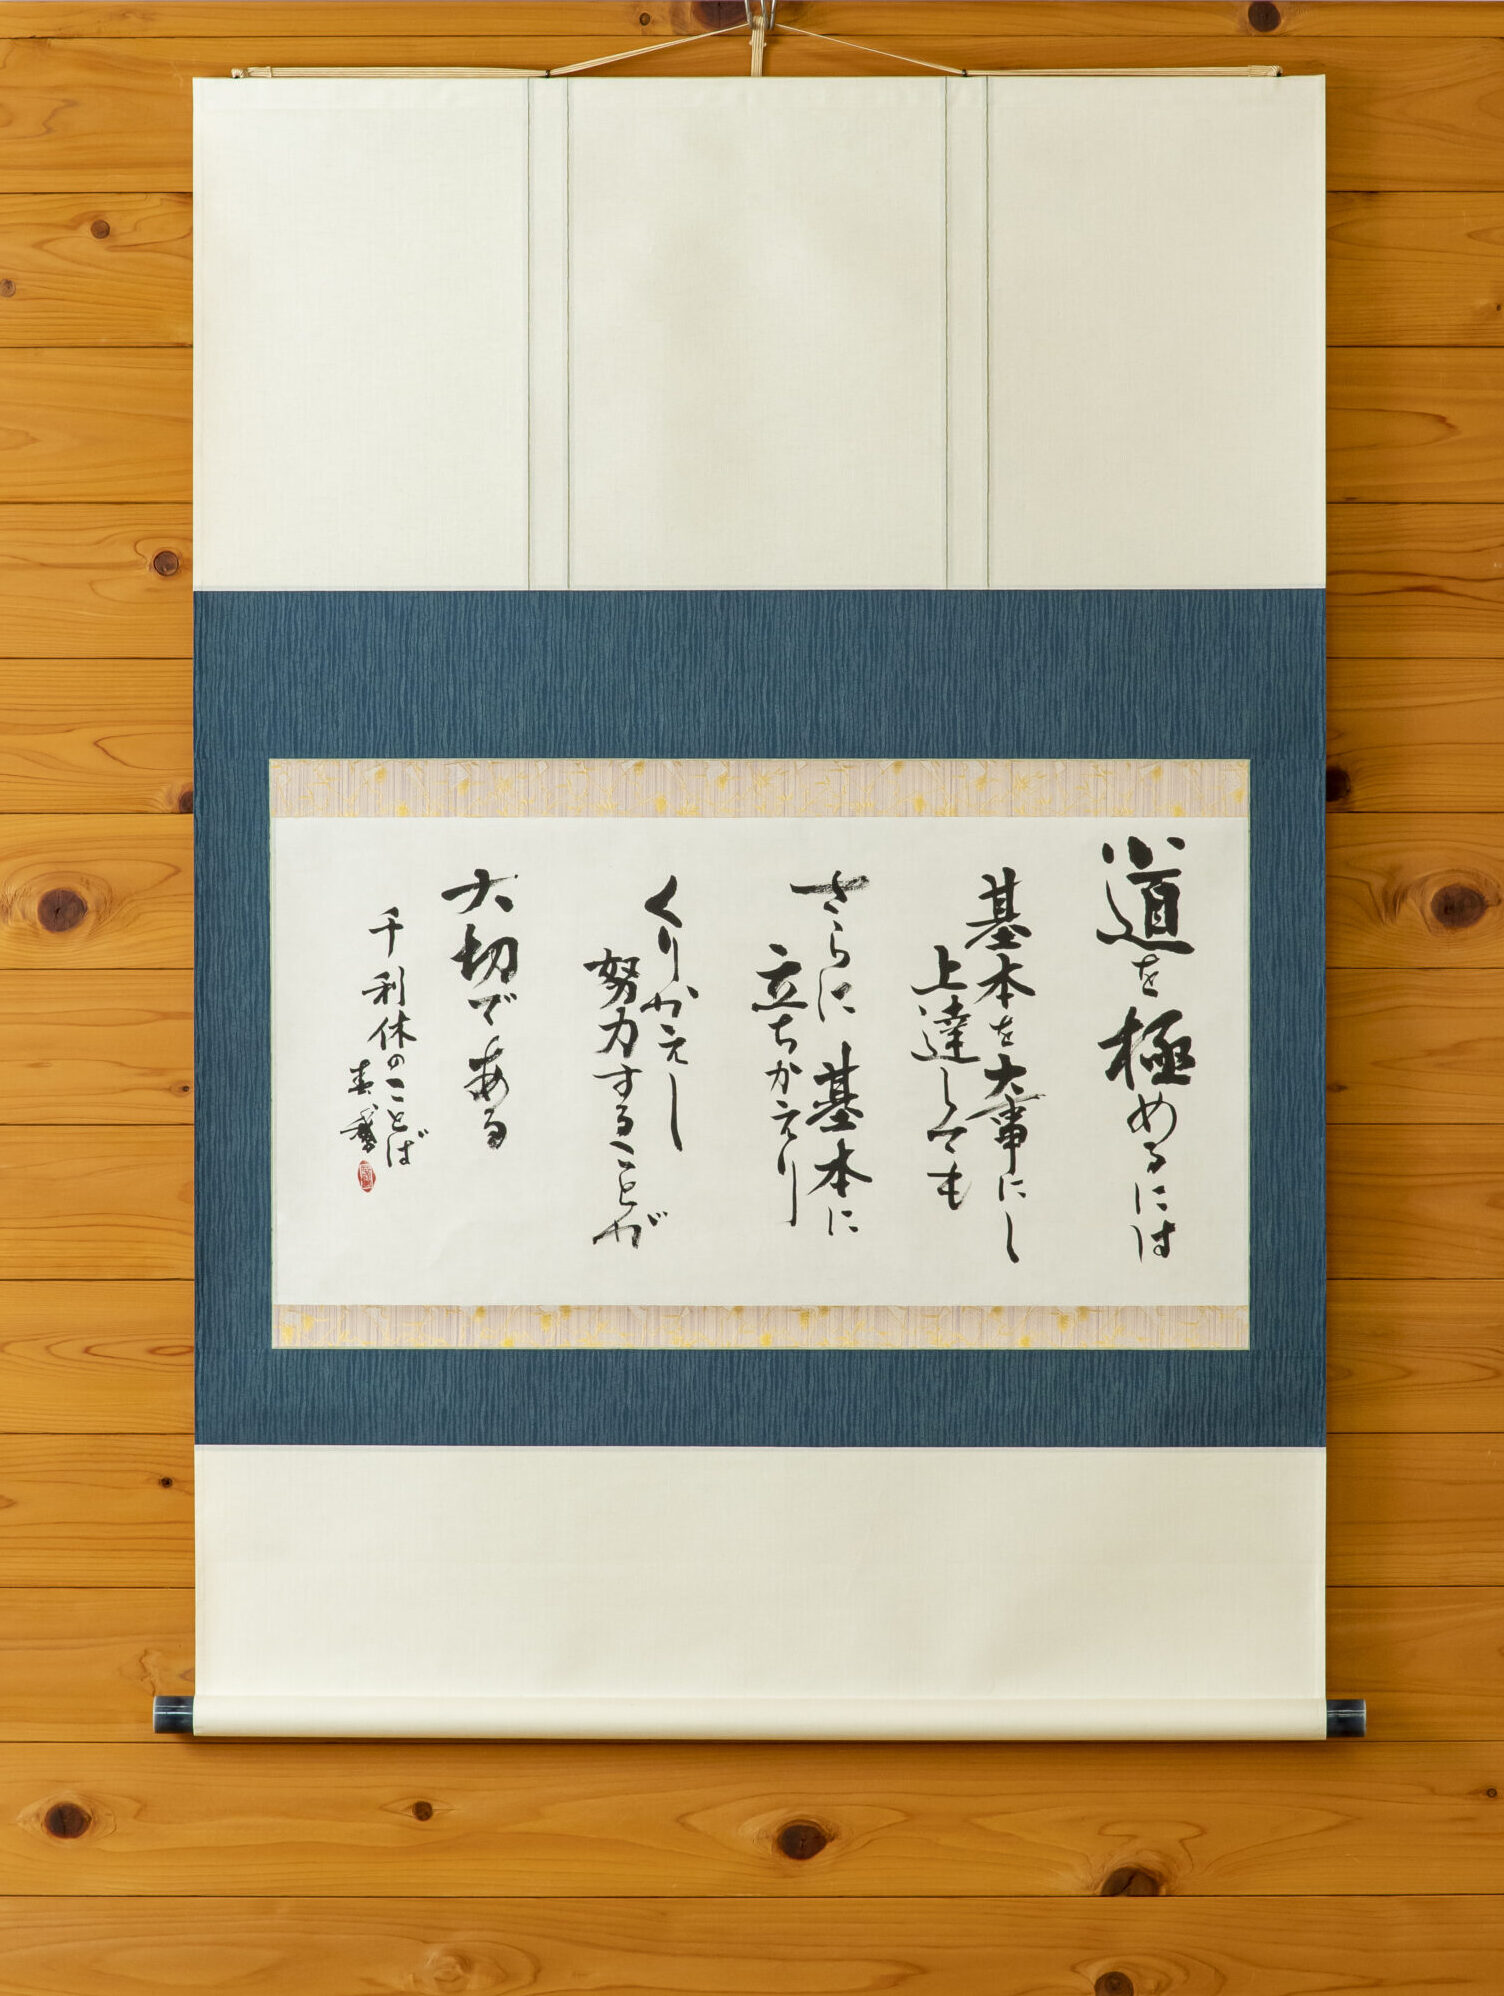 道を極めるには
基本を大事にし
上達しても
さらに基本に
立ちかえり
くりかえし
努力することが
大切である
千利休のことば